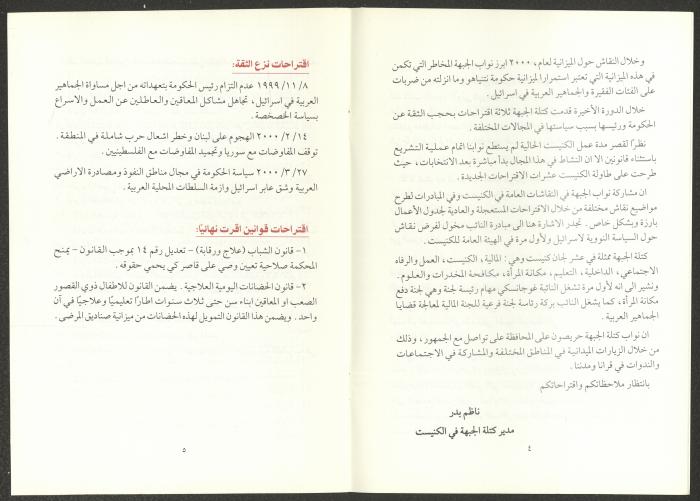 وخلال النقاش حول الميزانية لعام، ٢٠٠٠ ابرز نواب الجبهة المخاطر التي تكمن
في هذه الميزانية التي تعتبر استمرارا لميزانية حكومة نتنياهو وما انزلته من ضربات
على الفئات الفقيرة والجماهير العربية في اسرائيل.
خلال الدورة الأخيرة قدمت كتلة الجبهة ثلاثة اقتراحات بحجب الثقة عن
الحكومة ورئيسها بسبب سياستها في المجالات المختلفة.
نظرًا لقصر مدة عمل الكنيست الحالية لم يستطع نوابنا اتمام عملية التشريع
باستثناء قانونين الا ان النشاط في هذا المجال بدأ مباشرة بعد الانتخابات، حيث
طرحت على طاولة الكنيست عشرات الاقتراحات الجديدة.
ان مشاركة نواب الجبهة في النقاشات العامة في الكنيست وفي المبادرات لطرح
مواضيع نقاش مختلفة من خلال الاقتراحات المستعجلة والعادية لجدول الأعمال
بارزة وبشكل خاص. تجدر الاشارة هنا الى مبادرة النائب مخول لفرض نقاش
حول السياسة النووية لاسرائيل ولأول مرة في الهيئة العامة للكنيست.
كتلة الجبهة ممثلة في عشر لجان كنيست وهي: المالية، الكنيست، العمل والرفاه
الاجتماعي، الداخلية، التعليم، مكانة المرأة، مكافحة المخدرات والعلوم.
ونشير الى انه لأول مرة تشغل النائبة غوجانسكي مهام رئيسة لجنة وهي لجنة دفع
مكانة المرأة، كما يشغل النائب بركة رئاسة لجنة فرعية للجنة المالية لمعالجة قضايا
الجماهير العربية.
ان نواب كتلة الجبهة حريصون على المحافظة على تواصل مع الجمهور، وذلك
من خلال الزيارات الميدانية في المناطق المختلفة والمشاركة في الاجتماعات
والندوات في قرانا ومدننا.
بانتظار ملاحظاتكم واقتراحاتكم
ناظم بدر
مدير كتلة الجبهة في الكنيست
٤
اقتراحات نزع الثقة:
١٩٩٩/١١/٨ عدم التزام رئيس الحكومة بتعهداته من اجل مساواة الجماهير
العربية في اسرائيل، تجاهل مشاكل المعاقين والعاطلين عن العمل والاسراع
بسياسة الخصخصة.
٢٠٠٠/٢/١٤ الهجوم على لبنان وخطر اشعال حرب شاملة في المنطقة.
توقف المفاوضات مع سوريا وتجميد المفاوضات مع الفلسطينيين.
٢٠٠٠/٣/٢٧ سياسة الحكومة في مجال مناطق النفوذ ومصادرة الاراضي
العربية وشق عابر اسرائيل وازمة السلطات المحلية العربية.
اقتراحات قوانين اقرت نهائيًا:
١- قانون الشباب (علاج ورقابة) - تعديل رقم ١٤ بموجب القانون - يمنح
المحكمة صلاحية تعيين وصي على قاصر كي يحمي حقوقه.
٢- قانون الحضانات اليومية العلاجية. يضمن القانون للاطفال ذوي القصور
الصعب او المعاقين ابناء سن حتى ثلاث سنوات اطارًا تعليميًا وعلاجيًا في آن
واحد. ويضمن هذا القانون التمويل لهذه الحضانات من ميزانية صناديق المرضى.
٥